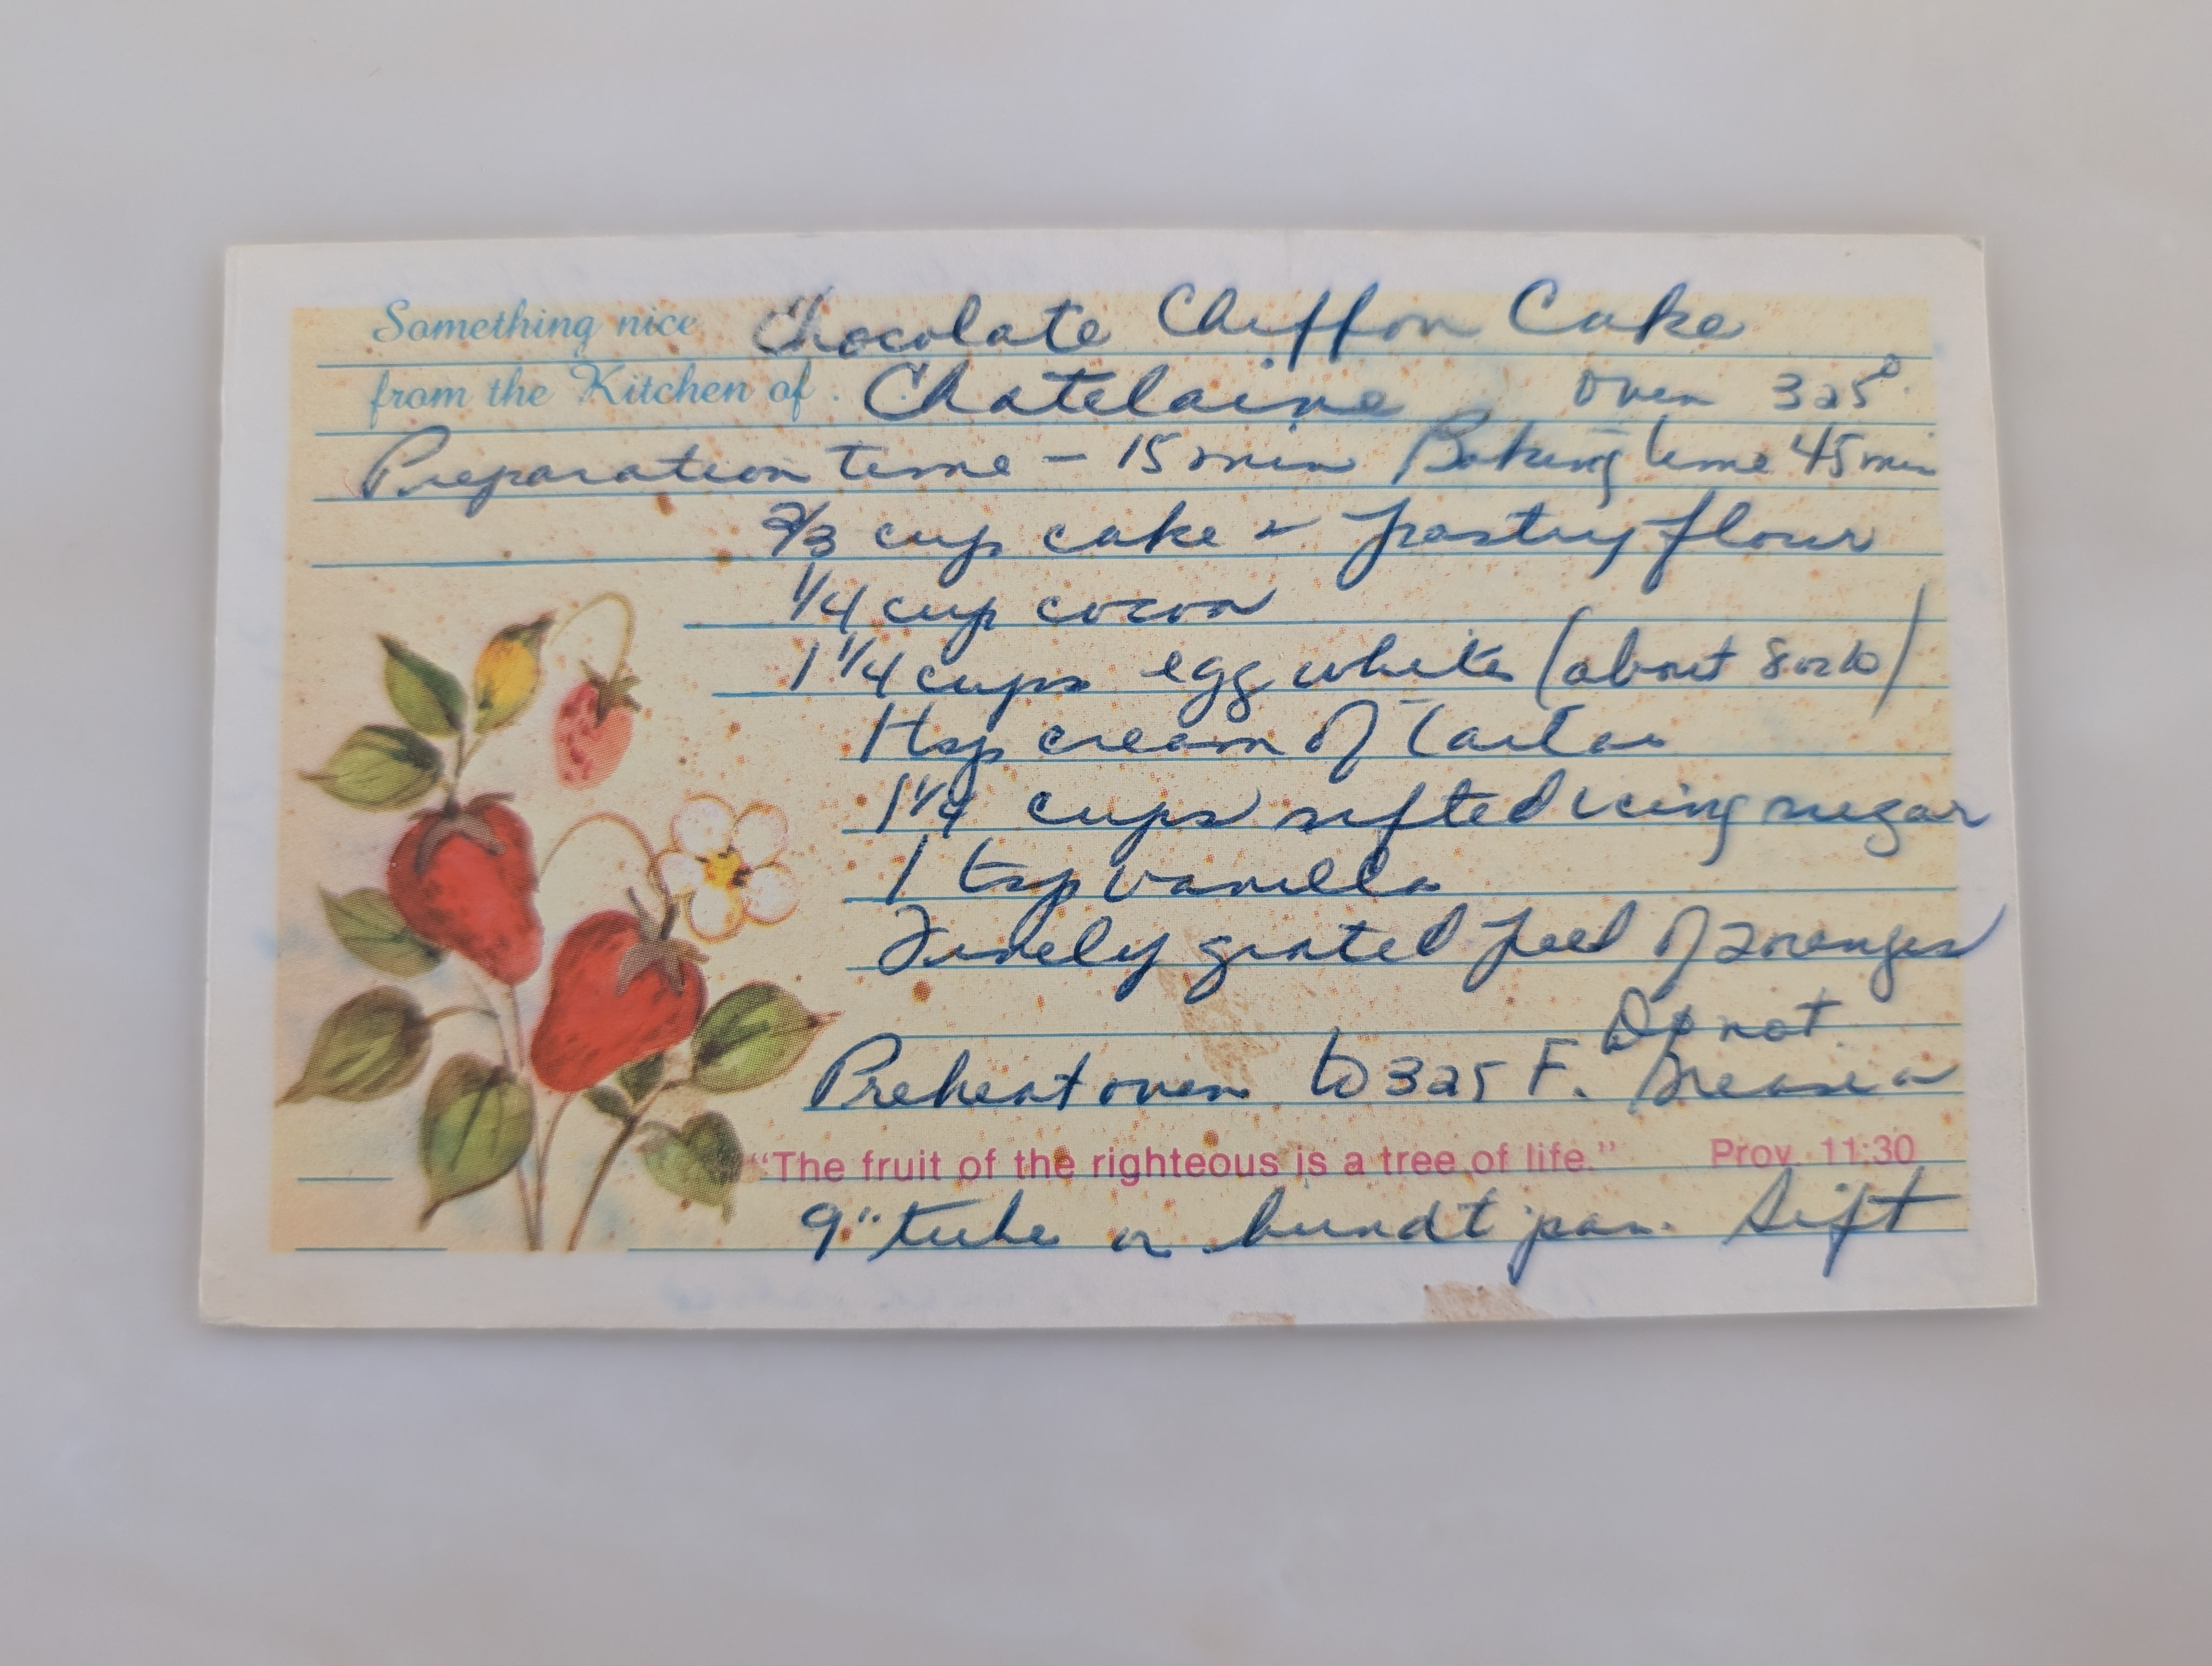 Something nice Chocolate Chiffon Cake
from the Kitchen of Chatelaine Oven 325°
Preparation time - 15 min Baking time 45 min
2/3 cup cake & pastry flour
1/4 cup cocoa
1 1/4 cups egg white (about 8 to 10)
1 tsp cream of tartar
1 1/4 cups sifted icing sugar
1 tsp vanilla
Finely grated peel of 2 oranges
Do not
Preheat oven to 325 F. Grease a
"The fruit of the righteous is a tree of life." Prov. 11:30
9" tube or bundt pan. Sift